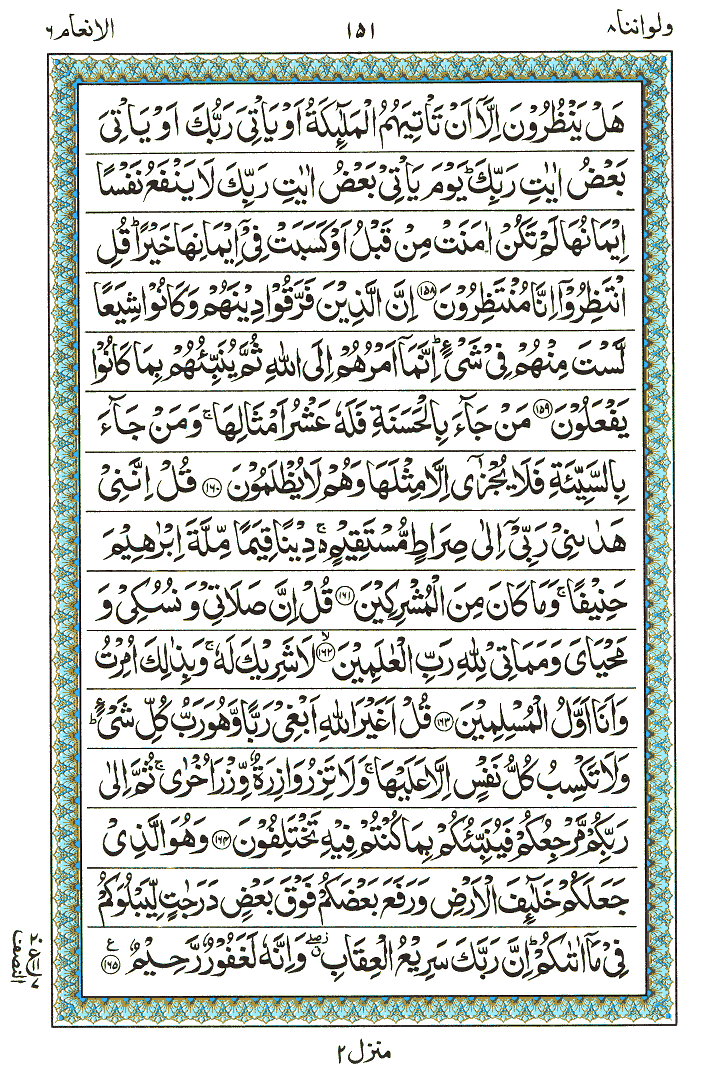 ولواننا ٨ ١٥١ الانعام ٦
هَلْ يَنْظُرُوْنَ اِلَّاۤ اَنْ تَاْتِيَهُمُ الْمَلٰٓئِكَةُ اَوْ يَاْتِيَ رَبُّكَ اَوْ يَاْتِيَ
بَعْضُ اٰيٰتِ رَبِّكَ ؕ يَوْمَ يَاْتِيْ بَعْضُ اٰيٰتِ رَبِّكَ لَا يَنْفَعُ نَفْسًا
اِيْمَانُهَا لَمْ تَكُنْ اٰمَنَتْ مِنْ قَبْلُ اَوْ كَسَبَتْ فِيْۤ اِيْمَانِهَا خَيْرًا ؕ قُلِ
انْتَظِرُوْۤا اِنَّا مُنْتَظِرُوْنَ ١٥٨ اِنَّ الَّذِيْنَ فَرَّقُوْا دِيْنَهُمْ وَكَانُوْا شِيَعًا
لَّسْتَ مِنْهُمْ فِيْ شَيْءٍ ؕ اِنَّمَاۤ اَمْرُهُمْ اِلَى اللّٰهِ ثُمَّ يُنَبِّئُهُمْ بِمَا كَانُوْا
يَفْعَلُوْنَ ١٥٩ مَنْ جَآءَ بِالْحَسَنَةِ فَلَهٗ عَشْرُ اَمْثَالِهَا ۚ وَمَنْ جَآءَ
بِالسَّيِّئَةِ فَلَا يُجْزٰۤى اِلَّا مِثْلَهَا وَهُمْ لَا يُظْلَمُوْنَ ١٦٠ قُلْ اِنَّنِيْ
هَدٰىنِيْ رَبِّيْۤ اِلٰى صِرَاطٍ مُّسْتَقِيْمٍ ۚ دِيْنًا قِيَمًا مِّلَّةَ اِبْرٰهِيْمَ
حَنِيْفًا ۚ وَمَا كَانَ مِنَ الْمُشْرِكِيْنَ ١٦١ قُلْ اِنَّ صَلَاتِيْ وَنُسُكِيْ وَ
مَحْيَايَ وَمَمَاتِيْ لِلّٰهِ رَبِّ الْعٰلَمِيْنَ ۙ ١٦٢ لَا شَرِيْكَ لَهٗ ۚ وَبِذٰلِكَ اُمِرْتُ
وَاَنَا اَوَّلُ الْمُسْلِمِيْنَ ١٦٣ قُلْ اَغَيْرَ اللّٰهِ اَبْغِيْ رَبًّا وَّهُوَ رَبُّ كُلِّ شَيْءٍ ؕ
وَلَا تَكْسِبُ كُلُّ نَفْسٍ اِلَّا عَلَيْهَا ۚ وَلَا تَزِرُ وَازِرَةٌ وِّزْرَ اُخْرٰى ۚ ثُمَّ اِلٰى
رَبِّكُمْ مَّرْجِعُكُمْ فَيُنَبِّئُكُمْ بِمَا كُنْتُمْ فِيْهِ تَخْتَلِفُوْنَ ١٦٤ وَهُوَ الَّذِيْ
جَعَلَكُمْ خَلٰٓئِفَ الْاَرْضِ وَرَفَعَ بَعْضَكُمْ فَوْقَ بَعْضٍ دَرَجٰتٍ لِّيَبْلُوَكُمْ
فِيْ مَاۤ اٰتٰىكُمْ ؕ اِنَّ رَبَّكَ سَرِيْعُ الْعِقَابِ ۖ وَاِنَّهٗ لَغَفُوْرٌ رَّحِيْمٌ ١٦٥ ع
النصف
منزل ٢